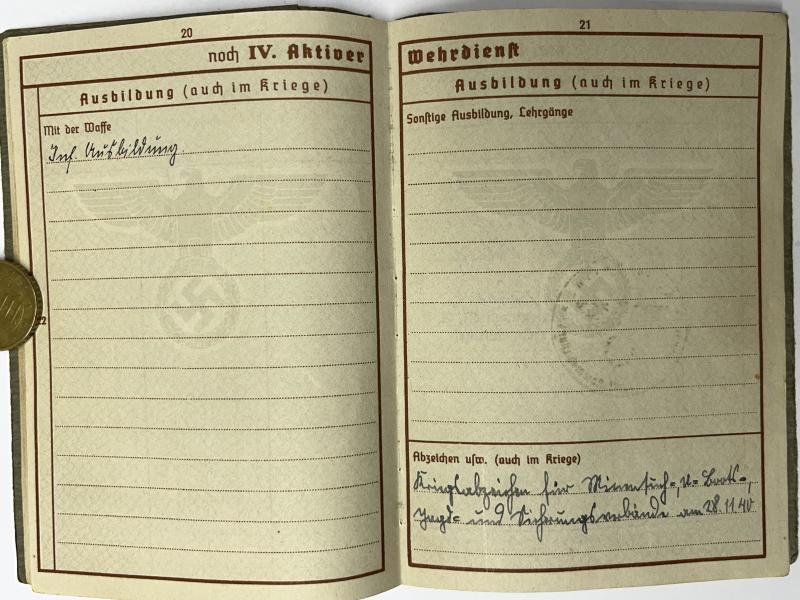 20
noch IV. Aktiver
Ausbildung (auch im Kriege)
Mit der Waffe
Inf. Ausbildung.
21
Wehrdienst
Ausbildung (auch im Kriege)
Sonstige Ausbildung, Lehrgänge
Abzeichen usw. (auch im Kriege)
Kriegsabzeichen für Minensuch-, U-Boots-,
Jagd- und Sicherungsverbände am 28.11.40